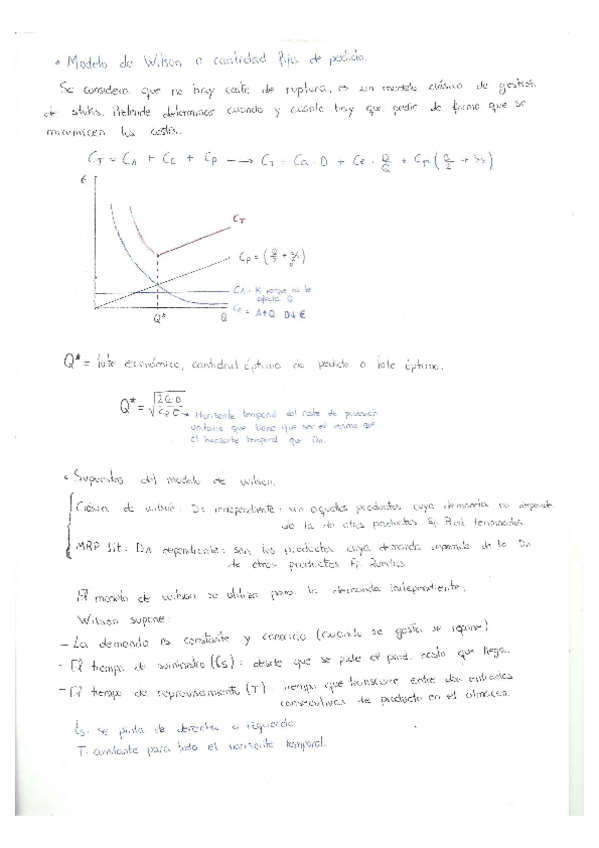 • Modelo de Wilson o cantidad fija de pedido.
Se considera que no hay coste de ruptura, es un modelo clásico de gestión
de stoks. Pretende determinar cuando y cuanto hay que pedir de forma que se
minimicen los costes.
C_T = C_A + C_E + C_P → C_T = Ca · D + Ce · D/Q + Cp (Q/2 + Ss)
€
C_T
C_P = (Q/2 + Ss)
C_A = K porque no le
afecta Q
C_E = A↑Q D↓ €
Q*
Q
Q* = lote económico, cantidad óptima de pedido o lote óptimo.
Q* = √(2 Ce D / Cp
Horizonte temporal del coste de posesión
unitario que tiene que ser el mismo
el horizonte temporal que Da.
• Supuestos del modelo de wilson.
Clásico de wilson: Da independiente: son aquellos productos cuya demanda no depende
de la de otros productos Ej. Prod. terminados
MRP Jit: Da dependiente: son los productos cuya demanda depende de la Da
de otros productos Ej. Ruedas
El modelo de wilson se utiliza para la demanda independiente.
Wilson supone:
- La demanda es constante y conocida (cuando se gasta se repone)
- El tiempo de suministro (ts): desde que se pide el prod. hasta que llega.
- El tiempo de reprovisionamiento (T): tiempo que transcurre entre dos entradas
consecutivas de producto en el almacen.
ts. se pinta de derecha a izquierda
T. constante para todo el horizonte temporal.